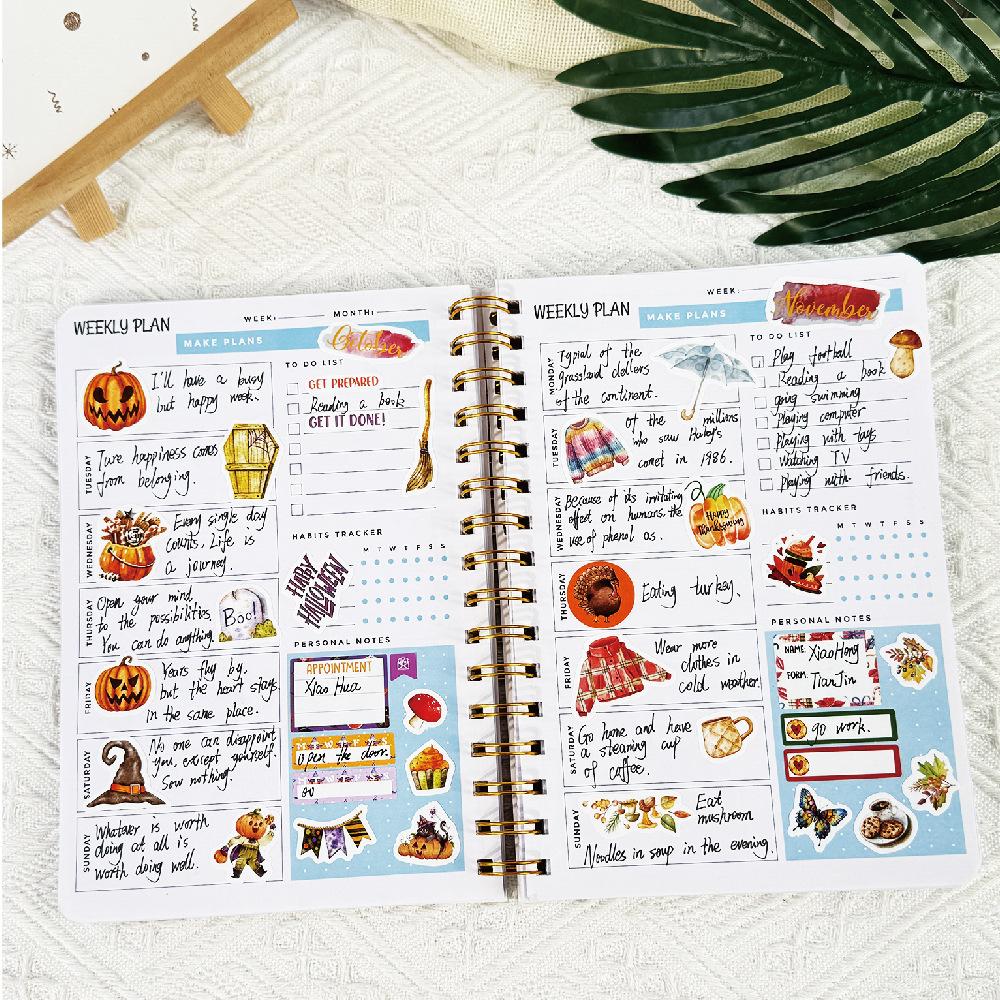 WEEKLY PLAN
WEEK:
MONTH:
MAKE PLANS
October
I'll have a busy
but happy week.
TUESDAY
Ture happiness comes
from belonging.
WEDNESDAY
Every single day
counts. Life is
a journey.
THURSDAY
Open your mind
to the possibilities.
You can do anything.
Boo!
FRIDAY
Years flug by.
but the heart stays
in the same place.
SATURDAY
No one can disappoint
you, except yourself.
Sow nothing.
SUNDAY
Whatever is worth
doing at all is
worth doing well.
TO DO LIST
GET PREPARED
Reading a book
GET IT DONE!
HABITS TRACKER
M T W T F S S
HAPPY
HALLOWEEN
PERSONAL NOTES
APPOINTMENT
Xiao Hua
M T W T F S S
open the door.
go
WEEKLY PLAN
WEEK:
MAKE PLANS
November
MONDAY
Typial of the
grassland dollers
of the continent.
TUESDAY
of the millions
who saw Haley's
comet in 1986.
WEDNESDAY
Because of its irritating
effect on humans, the
use of phenol as.
Happy
Thanksgiving
THURSDAY
Eating turkey.
FRIDAY
Wear more
clothes in
cold weather.
SATURDAY
Go home and have
a steaning cup
of coffee.
SUNDAY
Eat
mushroom
Noodles in soup in the evening.
TO DO LIST
Play football
Reading a book
going swimming
Playing computer
Playing with toys
Watching TV
Playing with friends.
HABITS TRACKER
M T W T F S S
PERSONAL NOTES
NAME: XiaoHong
FORM: TianJin
go work.